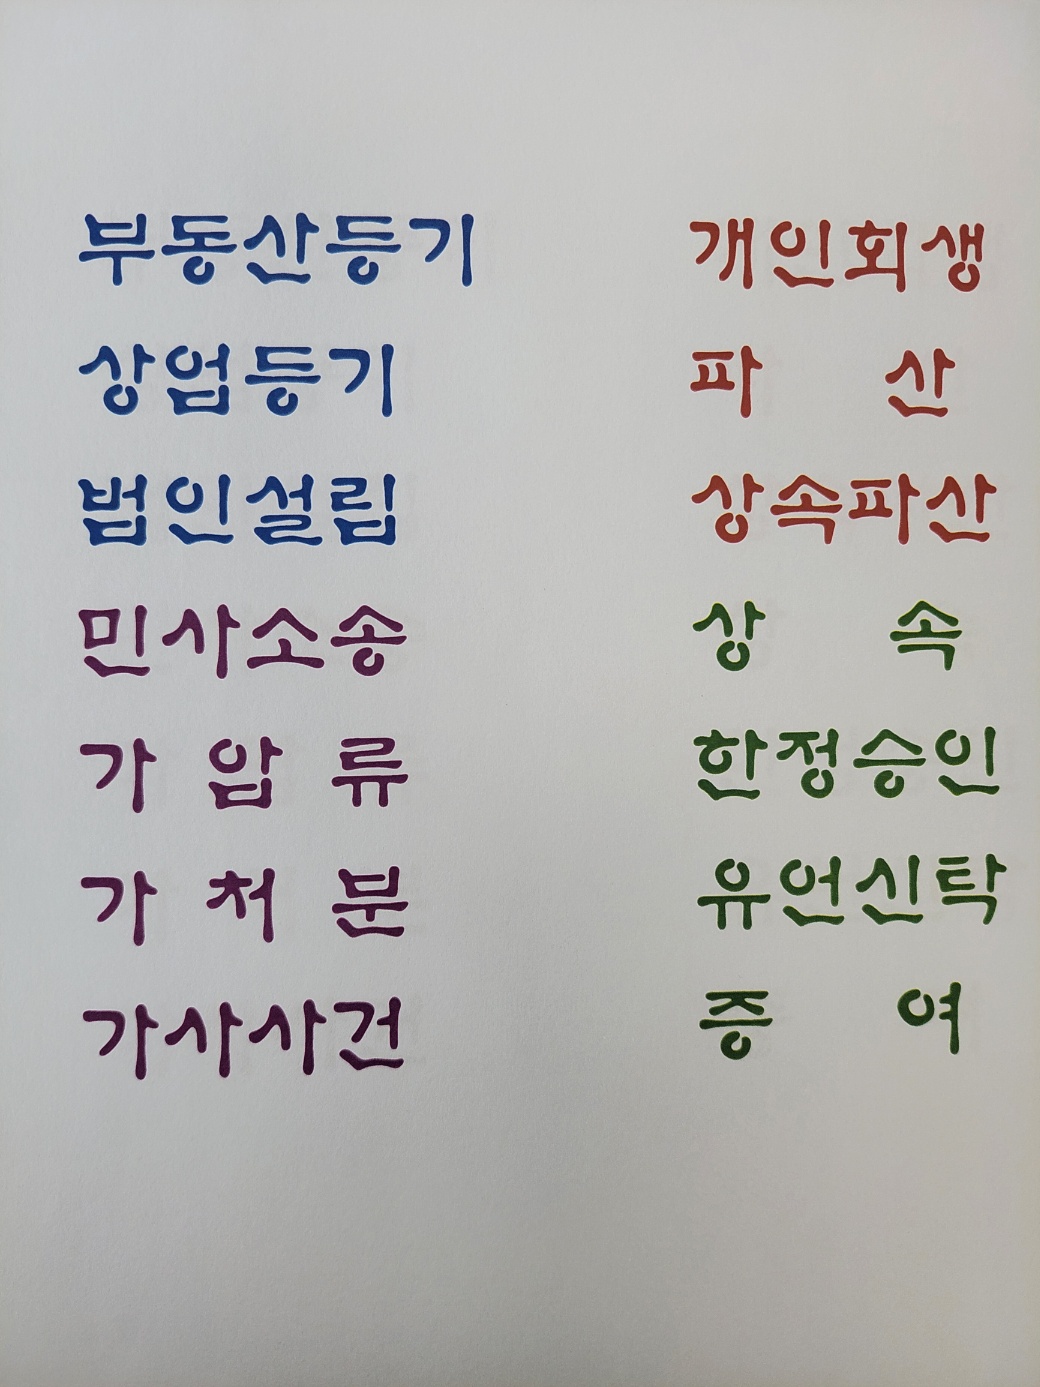 부동산등기
상업등기
법인설립
민사소송
가 압 류
가 처 분
가사사건
개인회생
파 산
상속파산
상 속
한정승인
유언신탁
증 여